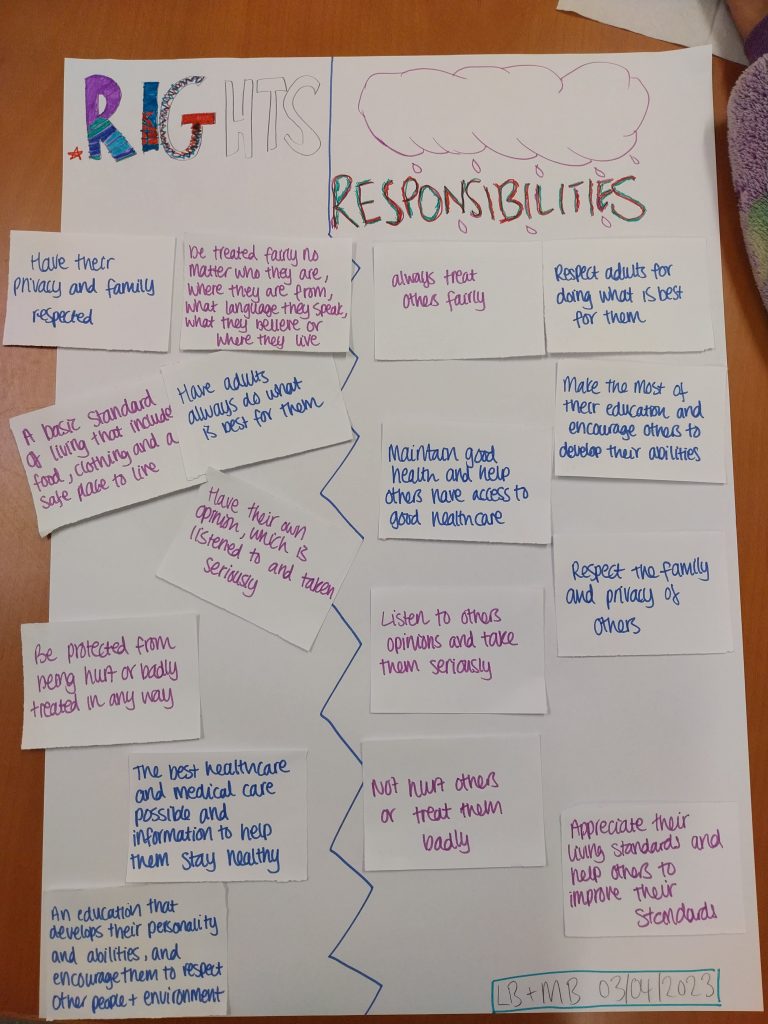 RIGHTS
RESPONSIBILITIES
Have their
privacy and family
respected
be treated fairly no
matter who they are,
where they are from,
what language they speak,
what they believe or
where they live
A basic standard
of living that includes
food, clothing and a
safe place to live
Have adults
always do what
is best for them
Have their own
opinion, which is
listened to and taken
seriously
Be protected from
being hurt or badly
treated in any way
The best healthcare
and medical care
possible and
information to help
them stay healthy
An education that
develops their personality
and abilities, and
encourage them to respect
other people + environment
always treat
others fairly
Respect adults for
doing what is best
for them
Make the most of
their education and
encourage others to
develop their abilities
Maintain good
health and help
others have access to
good healthcare
Respect the family
and privacy of
others
Listen to others
opinions and take
them seriously
Not hurt others
or treat them
badly
Appreciate their
living standards and
help others to
improve their
standards
LB + MB 03/04/2023